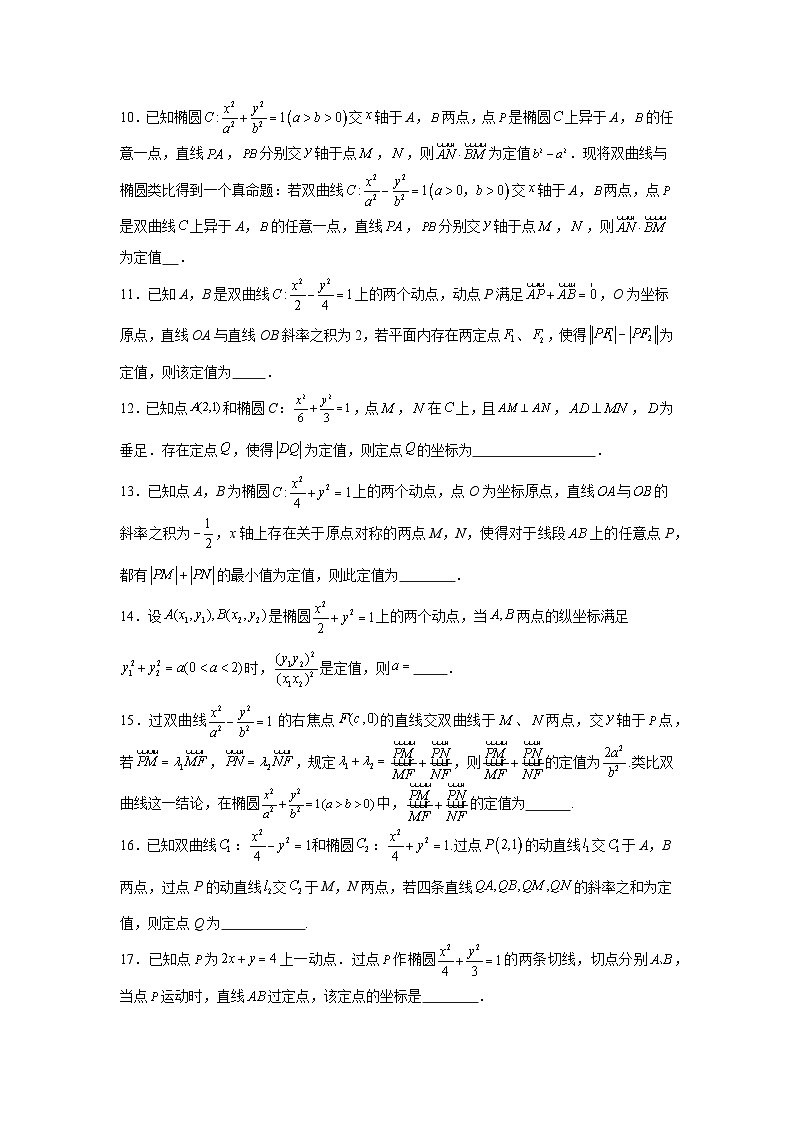 10．已知椭圆C:x²/a²+y²/b²=1(a>b>0)交x轴于A，B两点，点P是椭圆C上异于A，B的任
意一点，直线PA，PB分别交y轴于点M，N，则AN·BM为定值b²−a²．现将双曲线与
椭圆类比得到一个真命题：若双曲线C:x²/a²−y²/b²=1(a>0，b>0)交x轴于A，B两点，点P
是双曲线C上异于A，B的任意一点，直线PA，PB分别交y轴于点M，N，则AN·BM
为定值__．
11．已知A，B是双曲线C:x²/2−y²/4=1上的两个动点，动点P满足AP+AB=0，O为坐标
原点，直线OA与直线OB斜率之积为2，若平面内存在两定点F₁、F₂，使得||PF₁|−|PF₂||为
定值，则该定值为_____．
12．已知点A(2,1)和椭圆C：x²/6+y²/3=1，点M，N在C上，且AM⊥AN，AD⊥MN，D为
垂足．存在定点Q，使得|DQ|为定值，则定点Q的坐标为__________________．
13．已知点A，B为椭圆C:x²/4+y²=1上的两个动点，点O为坐标原点，直线OA与OB的
斜率之积为−1/2，x轴上存在关于原点对称的两点M，N，使得对于线段AB上的任意点P，
都有|PM|+|PN|的最小值为定值，则此定值为________．
14．设A(x₁,y₁),B(x₂,y₂)是椭圆x²/2+y²=1上的两个动点，当A,B两点的纵坐标满足
y₁²+y₂²=a(0<a<2)时，(y₁y₂)²/(x₁x₂)²是定值，则a=_____．
15．过双曲线x²/a²−y²/b²=1的右焦点F(c,0)的直线交双曲线于M、N两点，交y轴于P点，
若PM=λ₁MF，PN=λ₂NF，规定λ₁+λ₂=PM/MF+PN/NF，则PM/MF+PN/NF的定值为2a²/b².类比双
曲线这一结论，在椭圆x²/a²+y²/b²=1(a>b>0)中，PM/MF+PN/NF的定值为_______.
16．已知双曲线C₁：x²/4−y²=1和椭圆C₂：x²/4+y²=1.过点P(2,1)的动直线l₁交C₁于A，B
两点，过点P的动直线l₂交C₂于M，N两点，若四条直线QA,QB,QM,QN的斜率之和为定
值，则定点Q为____________.
17．已知点P为2x+y=4上一动点．过点P作椭圆x²/4+y²/3=1的两条切线，切点分别A、B，
当点P运动时，直线AB过定点，该定点的坐标是________．